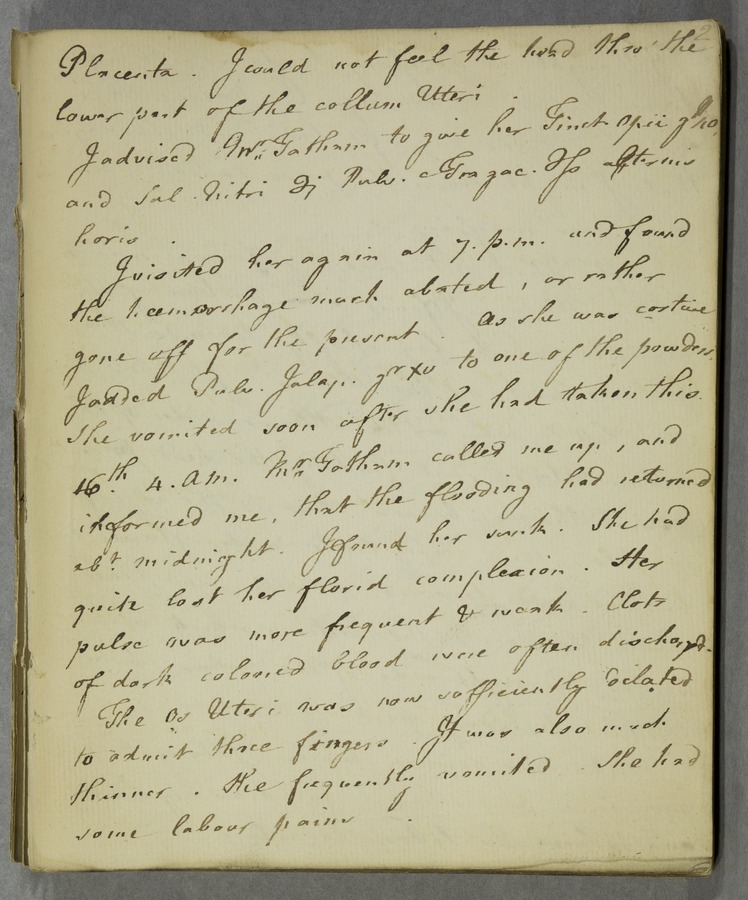 2
Placenta. I could not feel the head thro' the
lower part of the collum Uteri.
I advised Mr. Tatham to give her Tinct. Opii
and Sal. Nitri Pulv. e Tragac. alternis
horis.
I visited her again at 7. p.m. and found
the hœmorrhage much abated, or rather
gone off for the present. As she was costive
I added Pulv. Jalap. gr xv to one of the powders.
She vomited soon after she had taken this.
16th. 4. a.m. Mr. Tatham called me up, and
informed me, that the flooding had returned
abt. midnight. I found her sunk. She had
quite lost her florid complexion. Her
pulse was more frequent & weak. Clots
of dark coloured blood were often dischargd.
The Os Uteri was now sufficiently dilated
to admit three fingers. It was also much
thinner. She frequently vomited. She had
some labour pains.